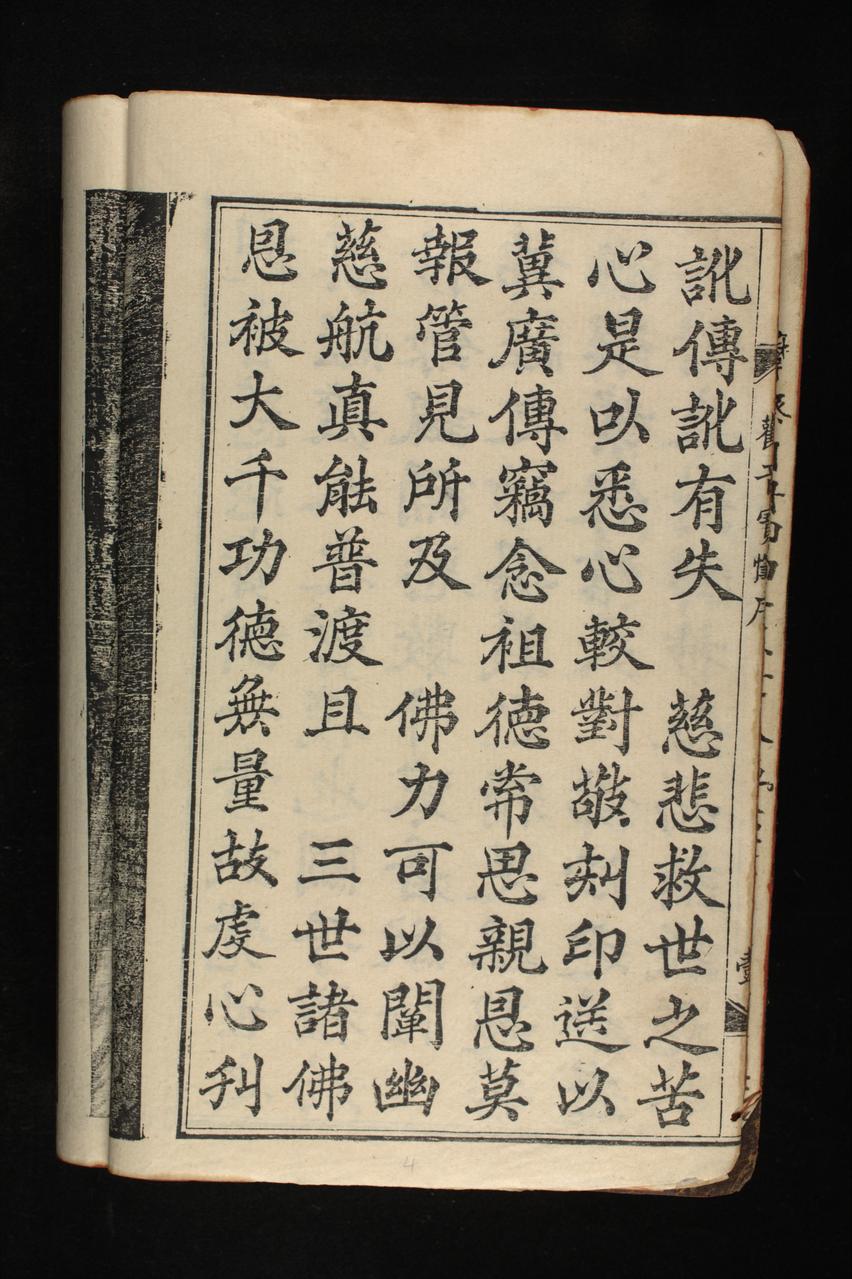 訛傳訛有失 慈悲救世之苦
心是以悉心較對敬刻印送以
兾廣傳竊念祖德常思親恩莫
報管見所及 佛力可以闡幽
慈航真能普渡且 三世諸佛
恩被大千功德無量故虔心刋
4